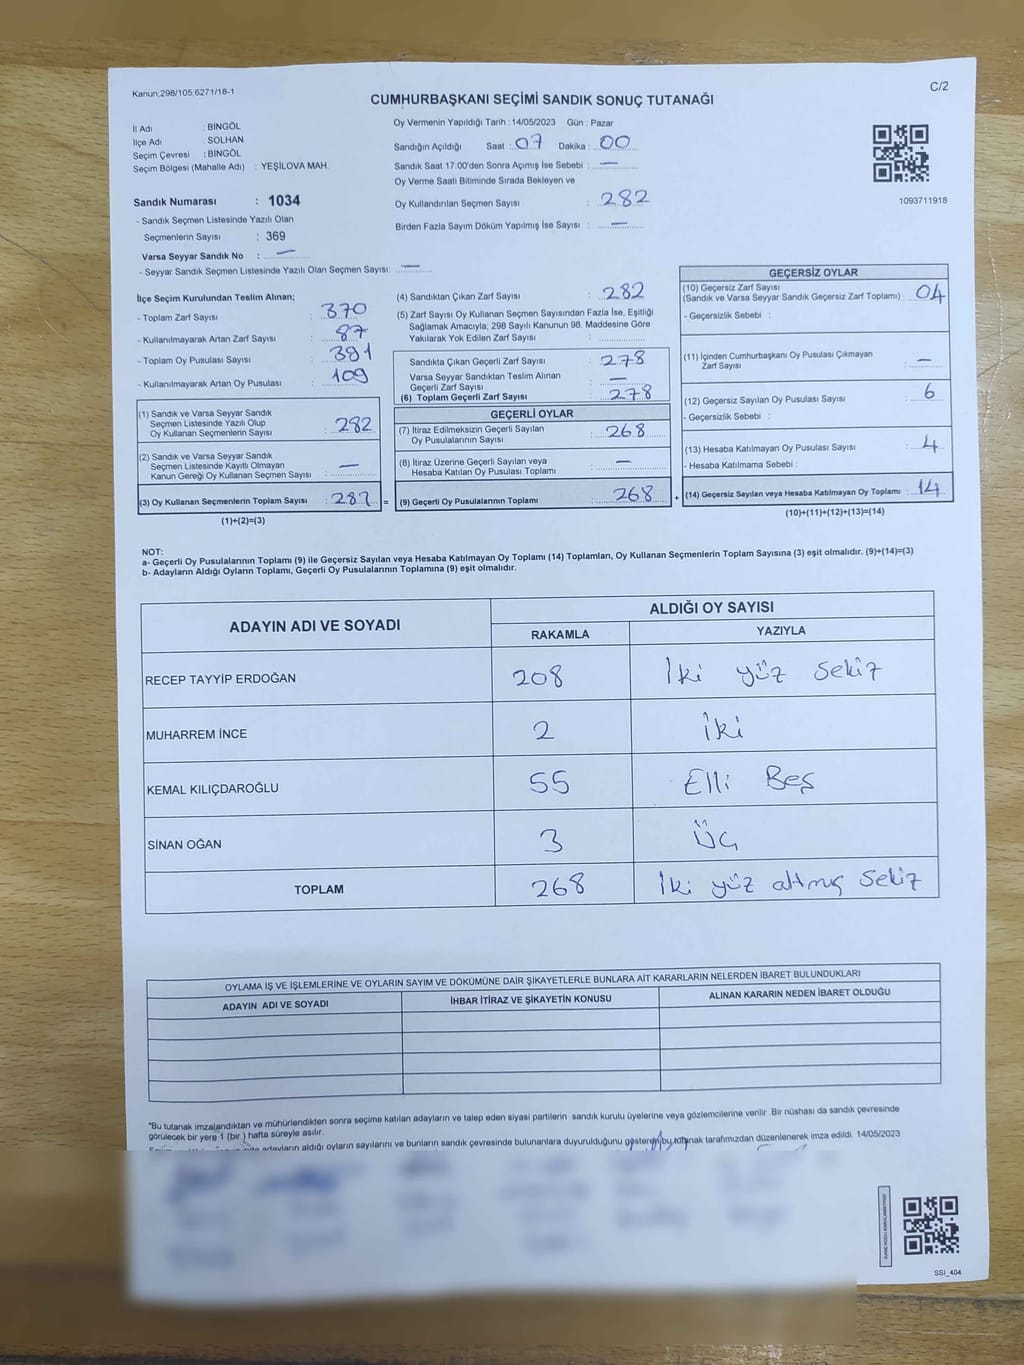 Kanun;298/105,6271/18-1
C/2
CUMHURBAŞKANI SEÇİMİ SANDIK SONUÇ TUTANAĞI
İl Adı : BİNGÖL
İlçe Adı : SOLHAN
Seçim Çevresi : BİNGÖL
Seçim Bölgesi (Mahalle Adı) : YEŞİLOVA MAH.
Sandık Numarası : 1034
- Sandık Seçmen Listesinde Yazılı Olan
Seçmenlerin Sayısı : 369
Varsa Seyyar Sandık No : —
- Seyyar Sandık Seçmen Listesinde Yazılı Olan Seçmen Sayısı: —
Oy Vermenin Yapıldığı Tarih : 14/05/2023 Gün : Pazar
Sandığın Açıldığı Saat : 07 Dakika : 00
Sandık Saat 17:00'den Sonra Açımış İse Sebebi : —
Oy Verme Saati Bitiminde Sırada Bekleyen ve
Oy Kullandırılan Seçmen Sayısı : 282
Birden Fazla Sayım Döküm Yapılmış İse Sayısı : —
1093711918
İlçe Seçim Kurulundan Teslim Alınan;
- Toplam Zarf Sayısı : 370
- Kullanılmayarak Artan Zarf Sayısı : 87
- Toplam Oy Pusulası Sayısı : 391
- Kullanılmayarak Artan Oy Pusulası : 109
(1) Sandık ve Varsa Seyyar Sandık
Seçmen Listesinde Yazılı Olup
Oy Kullanan Seçmenlerin Sayısı : 282
(2) Sandık ve Varsa Seyyar Sandık
Seçmen Listesinde Kayıtlı Olmayan
Kanun Gereği Oy Kullanan Seçmen Sayısı : —
(3) Oy Kullanan Seçmenlerin Toplam Sayısı : 282 =
(1)+(2)=(3)
(4) Sandıktan Çıkan Zarf Sayısı : 282
(5) Zarf Sayısı Oy Kullanan Seçmen Sayısından Fazla İse, Eşitliği
Sağlamak Amacıyla; 298 Sayılı Kanunun 98. Maddesine Göre
Yakılarak Yok Edilen Zarf Sayısı :
Sandıkta Çıkan Geçerli Zarf Sayısı : 278
Varsa Seyyar Sandıktan Teslim Alınan
Geçerli Zarf Sayısı : —
(6) Toplam Geçerli Zarf Sayısı : 278
GEÇERLİ OYLAR
(7) İtiraz Edilmeksizin Geçerli Sayılan
Oy Pusulalarının Sayısı : 268
(8) İtiraz Üzerine Geçerli Sayılan veya
Hesaba Katılan Oy Pusulası Toplamı : —
(9) Geçerli Oy Pusulalarının Toplamı : 268 +
GEÇERSİZ OYLAR
(10) Geçersiz Zarf Sayısı
(Sandık ve Varsa Seyyar Sandık Geçersiz Zarf Toplamı) : 04
- Geçersizlik Sebebi :
(11) İçinden Cumhurbaşkanı Oy Pusulası Çıkmayan
Zarf Sayısı : —
(12) Geçersiz Sayılan Oy Pusulası Sayısı : 6
- Geçersizlik Sebebi :
(13) Hesaba Katılmayan Oy Pusulası Sayısı : 4
- Hesaba Katılmama Sebebi :
(14) Geçersiz Sayılan veya Hesaba Katılmayan Oy Toplamı : 14
(10)+(11)+(12)+(13)=(14)
NOT:
a- Geçerli Oy Pusulalarının Toplamı (9) ile Geçersiz Sayılan veya Hesaba Katılmayan Oy Toplamı (14) Toplamları, Oy Kullanan Seçmenlerin Toplam Sayısına (3) eşit olmalıdır. (9)+(14)=(3)
b- Adayların Aldığı Oyların Toplamı, Geçerli Oy Pusulalarının Toplamına (9) eşit olmalıdır.
ADAYIN ADI VE SOYADI ALDIĞI OY SAYISI
RAKAMLA YAZIYLA
RECEP TAYYİP ERDOĞAN 208 İki yüz sekiz
MUHARREM İNCE 2 İki
KEMAL KILIÇDAROĞLU 55 Elli Beş
SİNAN OĞAN 3 Üç
TOPLAM 268 İki yüz altmış sekiz
OYLAMA İŞ VE İŞLEMLERİNE VE OYLARIN SAYIM VE DÖKÜMÜNE DAİR ŞİKAYETLERLE BUNLARA AİT KARARLARIN NELERDEN İBARET BULUNDUKLARI
ADAYIN ADI VE SOYADI İHBAR İTİRAZ VE ŞİKAYETİN KONUSU ALINAN KARARIN NEDEN İBARET OLDUĞU
*Bu tutanak imzalandıktan ve mühürlendikten sonra seçime katılan adayların ve talep eden siyasi partilerin sandık kurulu üyelerine veya gözlemcilerine verilir. Bir nüshası da sandık çevresinde
görülecek bir yere 1 (bir) hafta süreyle asılır.
adayların aldığı oyların sayılarını ve bunların sandık çevresinde bulunanlara duyurulduğunu gösteren bu tutanak tarafımızdan düzenlenerek imza edildi. 14/05/2023
SSI_404